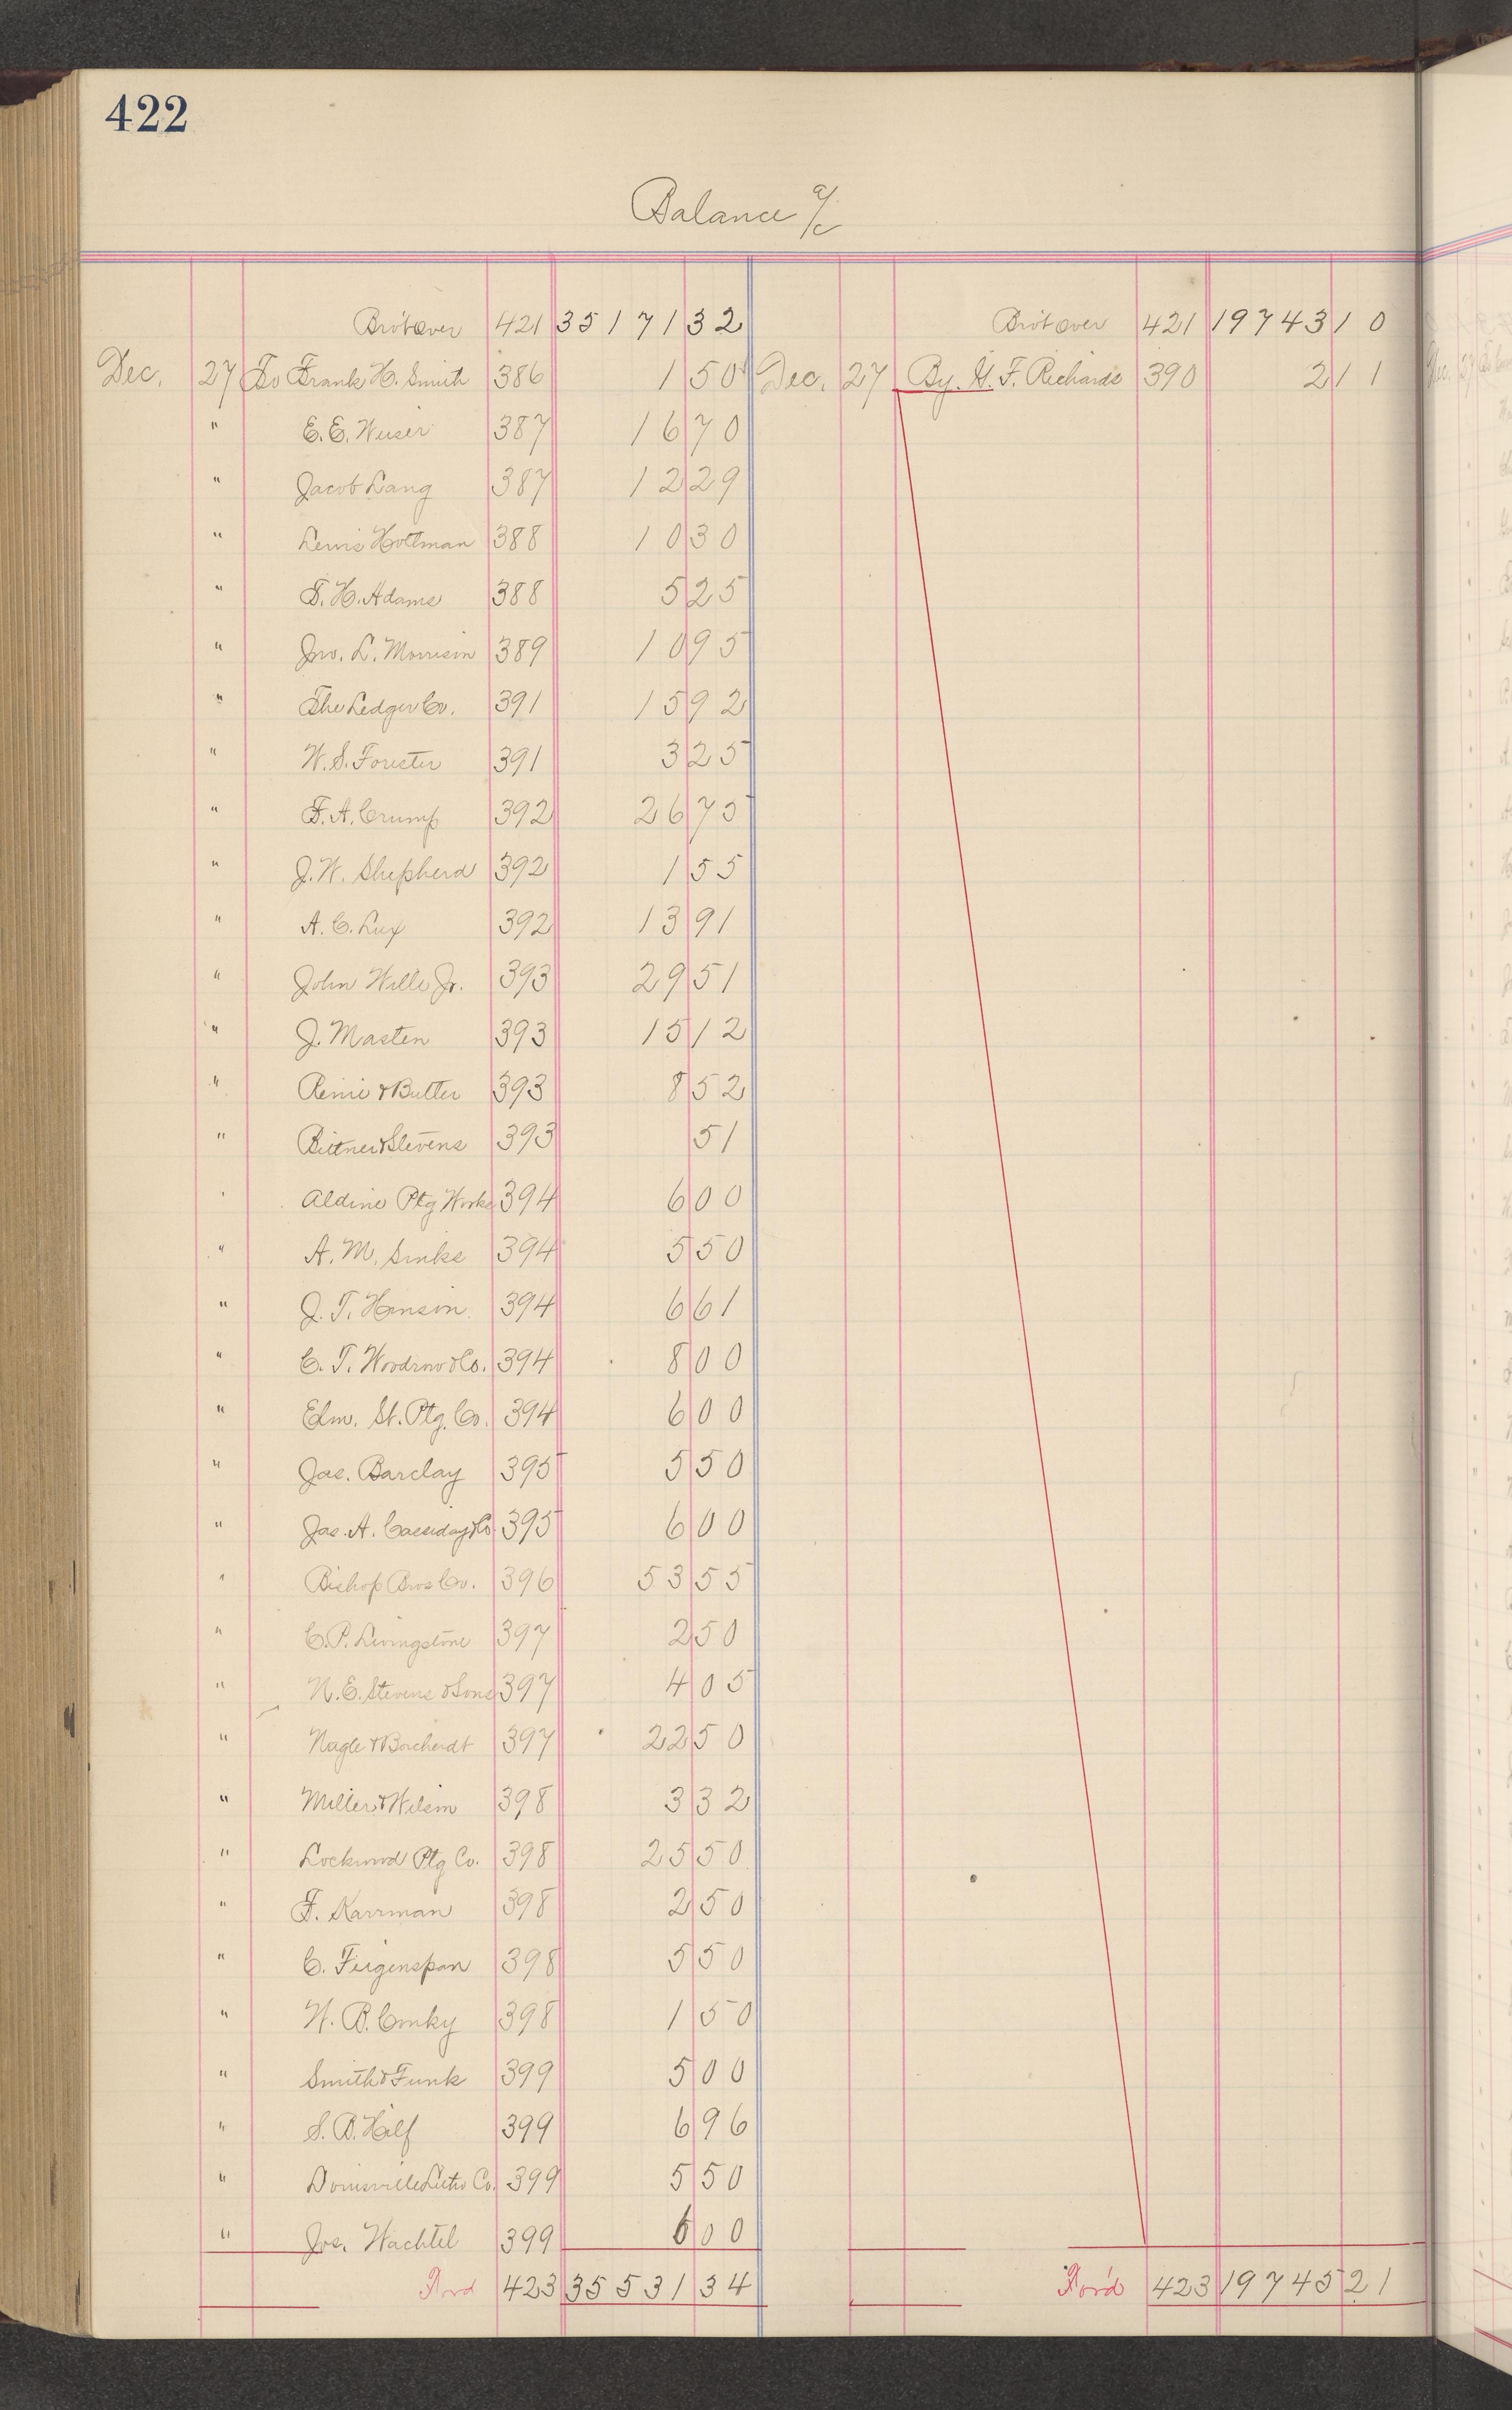 422
Balance a/c
Bro't over 421 35171 32 Bro't over 421 19743 10
Dec. 27 To Frank H. Smith 386 1 50 Dec. 27 By H. F. Richards 390 2 11
" E. E. Weiser 387 16 70
" Jacob Lang 387 12 29
" Lewis Hottman 388 10 30
" F. H. Adams 388 5 25
" Jno. L. Morrison 389 10 95
" The Ledger Co. 391 15 92
" W. S. Forester 391 3 25
" F. A. Crump 392 26 75
" J. W. Shepherd 392 1 55
" A. C. Lux 392 13 91
" John Wills Jr. 393 29 51
" J. Masten 393 15 12
" & Butler 393 8 52
" Bittner & Stevens 393 51
" Aldine Ptg Works 394 6 00
" A. M. Sinks 394 5 50
" J. T. Hanson 394 6 61
" C. T. Woodrow & Co. 394 8 00
" Elm. St. Ptg. Co. 394 6 00
" Jas. Barclay 395 5 50
" Jas. A. Cassiday & Co 395 6 00
" Bishop Bros Co. 396 53 55
" C. P. Livingstone 397 2 50
" N. E. Stevens & Sons 397 4 05
" Nagle & Borcherdt 397 22 50
" Miller & Wilson 398 3 32
" Lockwood Ptg Co. 398 25 50
" F. Karrman 398 2 50
" C. Feigenspan 398 5 50
" W. B. Conky 398 1 50
" Smith & Funk 399 5 00
" S. B. Hilf 399 6 96
" Louisville Litho Co. 399 5 50
" Jos. Wachtel 399 6 00
Ford 423 35531 34 For'd 423 19745 21